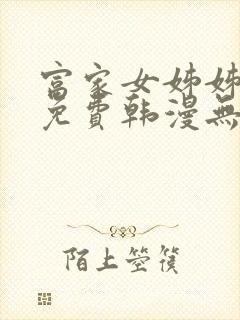 富家女姊姊
免費韩漫無
陌上箜篌